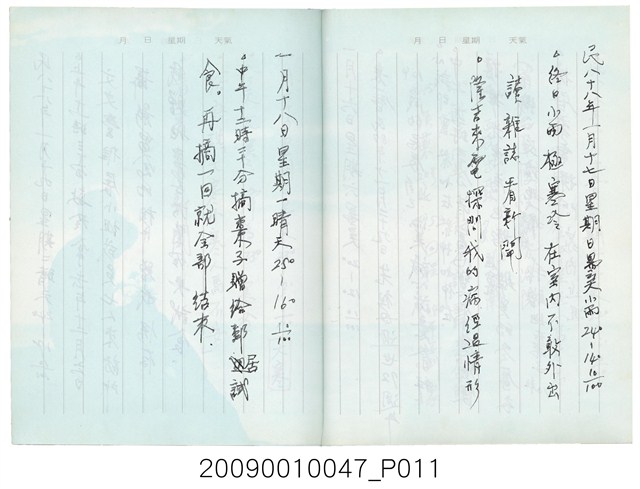 月 日 星期 天氣
民八十八年一月十七日星期日暴雨小雨24°-14° 10/100
。終日小雨極寒冷在室內不敢外出
讀雜誌看新聞
。隆吉來電探問我的病經過情形
月 日 星期 天氣
一月十八日星期一晴天25°-16° 10/100
。中午十二時二十分摘棗子贈給鄰居試
食。再摘一回就全部結束.
20090010047_P011